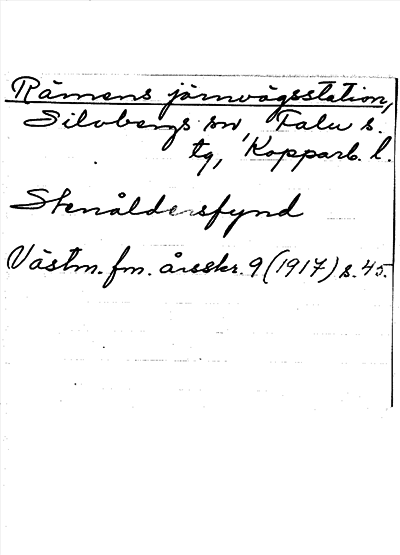 Rämens järnvägsstation,
Silvbergs sn, Falu s.
tg, Kopparb. l.
Stenåldersfynd
Västm. fm. årsskr. 9 (1917) s. 45.